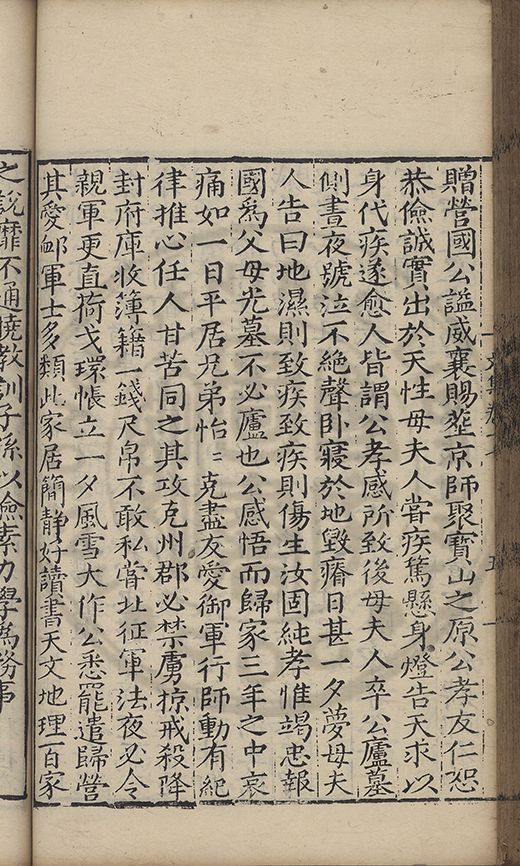 贈營國公謚威襄賜葬京師聚寶山之原公孝友仁恕
恭儉誠實出於天性母夫人嘗疾篤懸身燈告天求以
身代疾遂愈人皆謂公孝感所致後母夫人卒公廬墓
側晝夜號泣不絕聲卧寢於地毀瘠日甚一夕夢母夫
人告曰地濕則致疾致疾則傷生汝固純孝惟竭忠報
國爲父母光墓不必廬也公感悟而歸家三年之中哀
痛如一日平居兄弟怡〻克盡友愛御軍行師動有紀
律推心任人甘苦同之其攻克州郡必禁虜掠戒殺降
封府庫收簿籍一錢尺帛不敢私嘗北征軍法夜必令
親軍更直荷戈環帳立一夕風雪大作公悉罷遣歸營
其愛䘏軍士多類此家居簡靜好讀書天文地理百家
之說靡不通曉教訓子孫以儉素力學爲務事